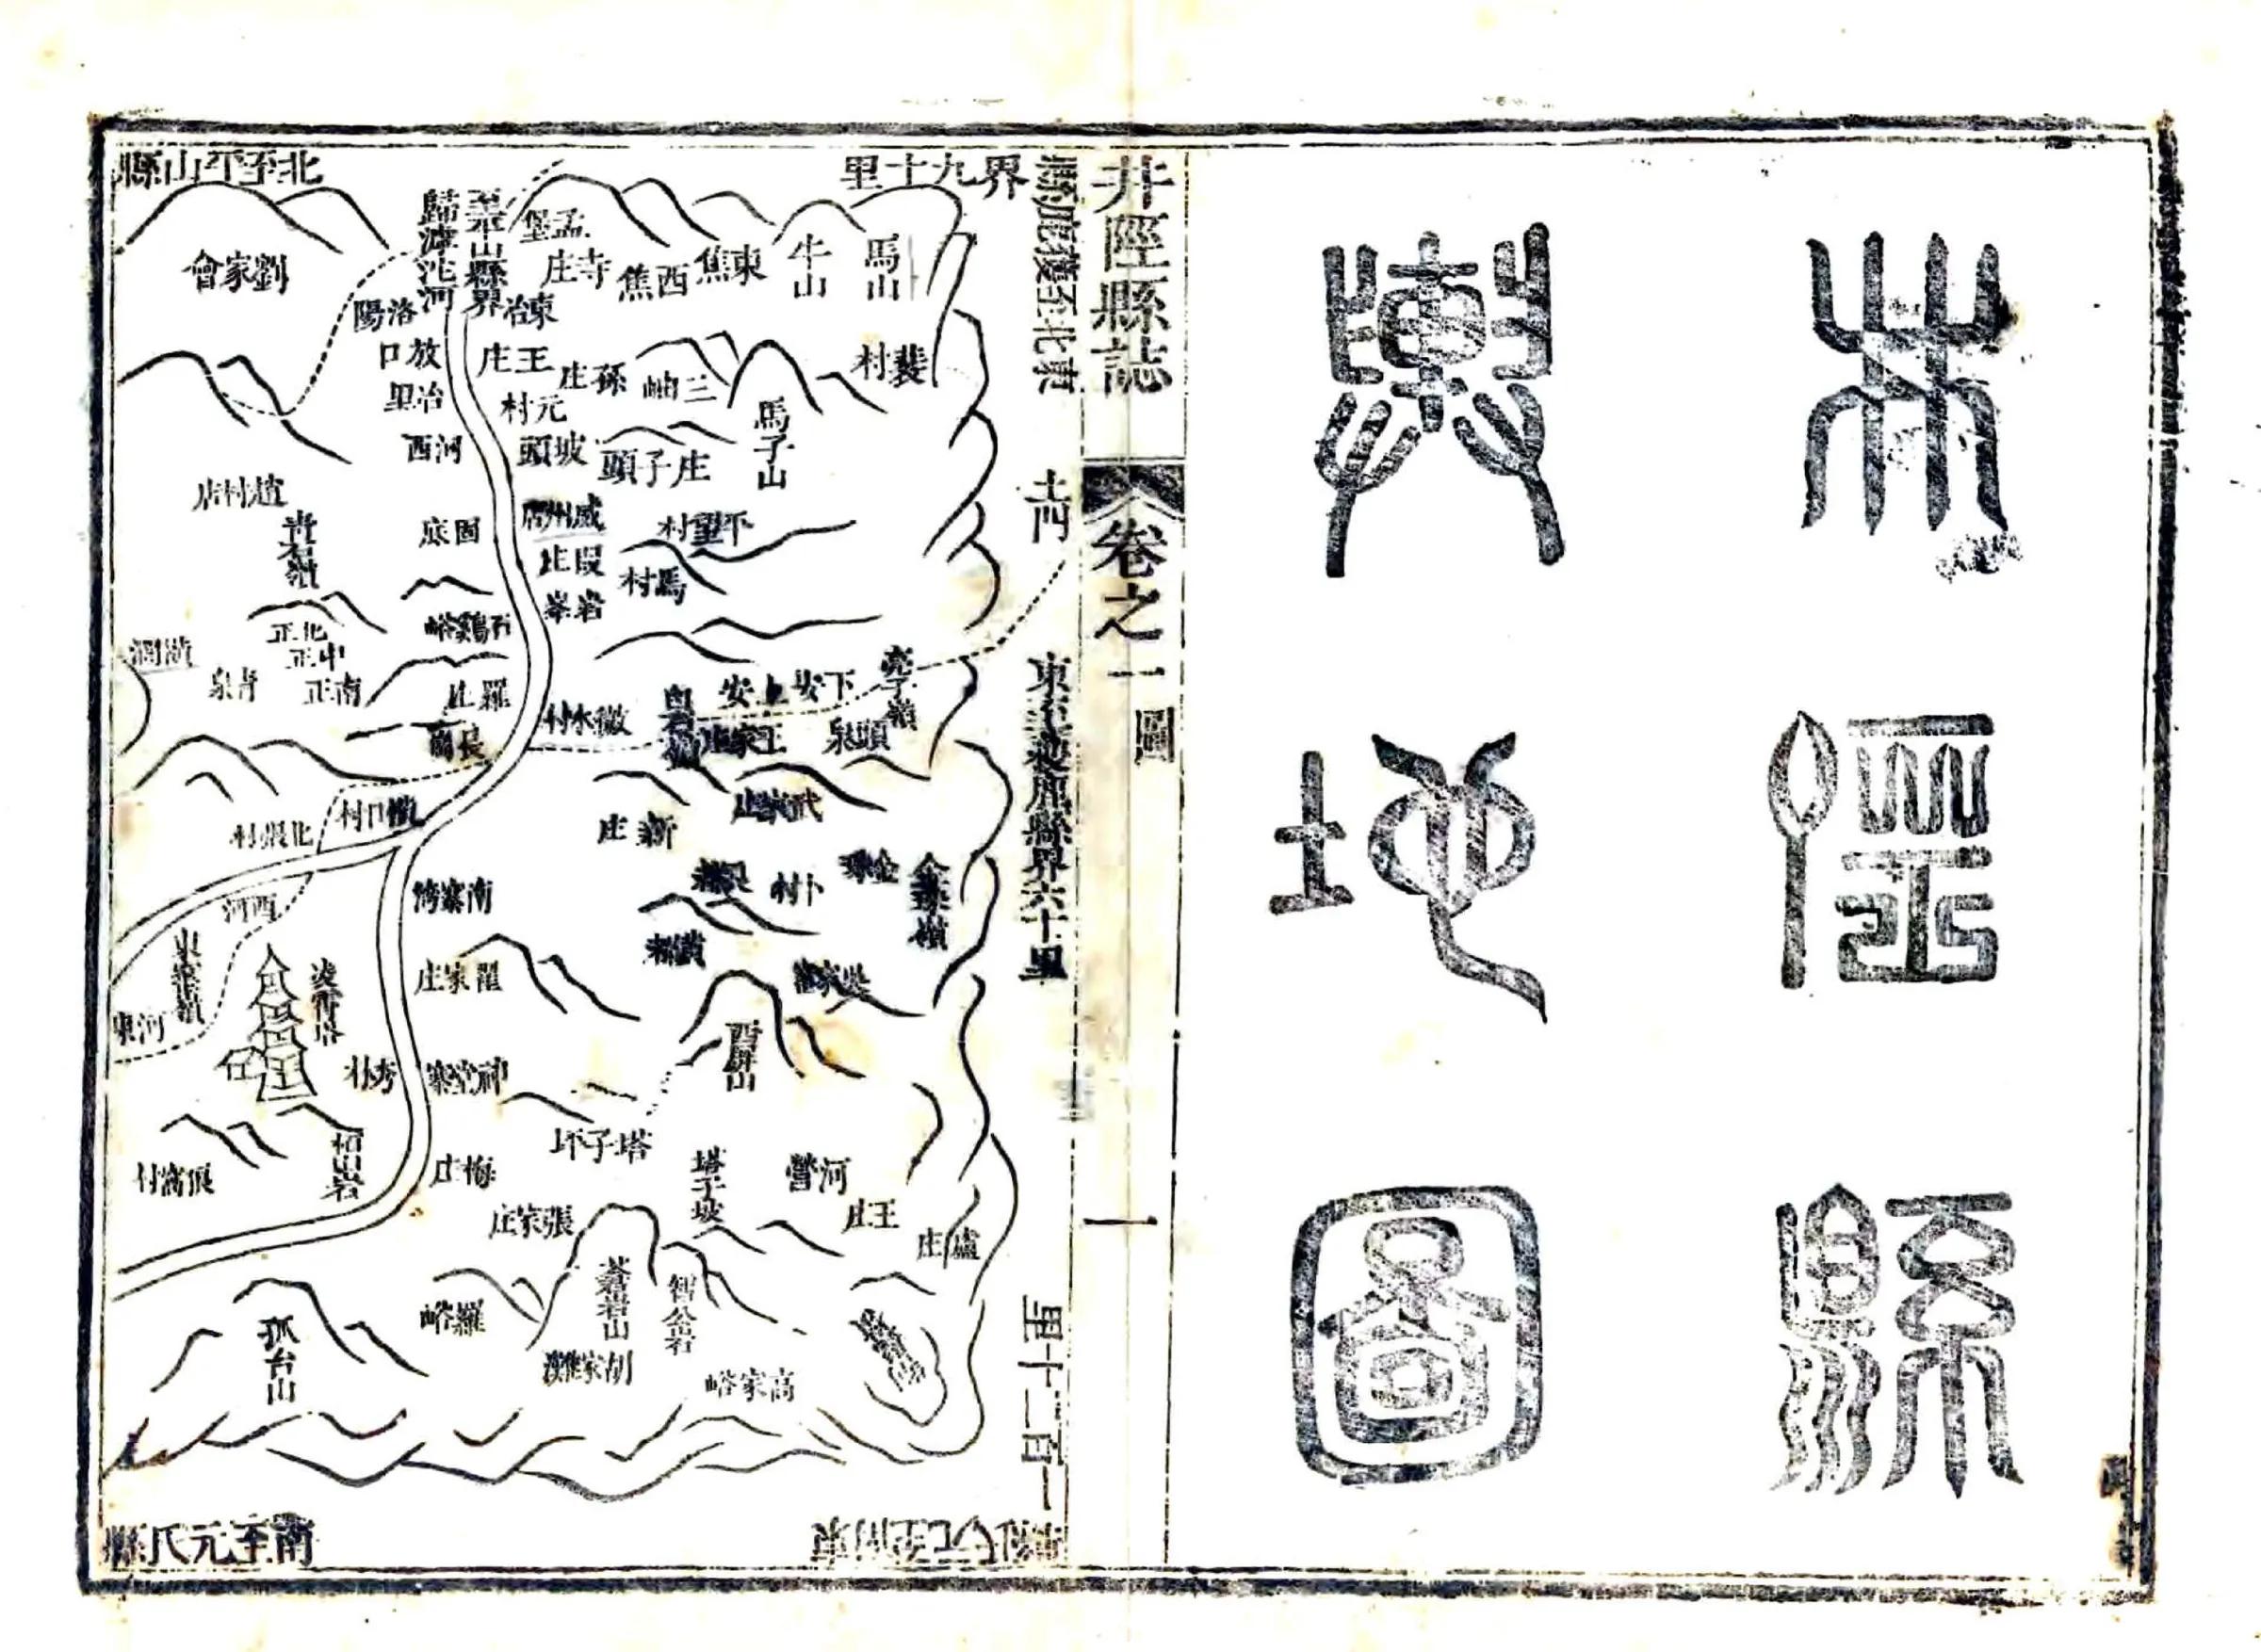 井陘縣
輿地圖
井陘縣誌
卷之一
圖
一
界九十里
東北至獲鹿縣
土門
東至獲鹿縣界六十里
一百二十里
東南至元氏縣界
北至平山縣
南至元氏縣
至平山縣界
歸滹沱河
馬山
牛山
東焦
西焦
孟堡
寺庄
劉家會
東冶
洛陽
裴村
三岫
孫庄
王庄
放口
元村
冶里
馬子山
庄子頭
坡頭
河西
趙村店
青石嶺
威州店
平望村
固底
段庄
馬村
岩峯
石鷄峪
北正
中正
南正
青泉
橫澗
羅庄
長崗
微水村
白石嶺
上安
下安
亮子嶺
頭泉
王家庄
武家庄
新庄
橫口村
北張村
吳村
卜村
金珠
金珠嶺
橫村
吳家窰
南寨灣
西河
東窰嶺
河東
凌霄塔
翟家庄
西屏山
神堂寨
塔子坪
塔子坡
河營
王庄
盧庄
梅庄
張家庄
栢山岩
蒼岩山
智公岩
羅峪
胡家灘
高家峪
孤台山